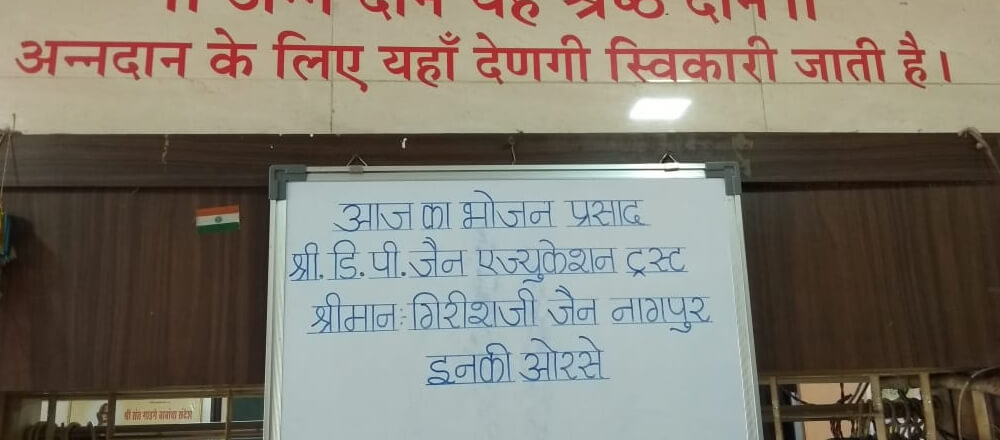 ॥ अन्न दान यह श्रेष्ठ दान ॥
अन्नदान के लिए यहाँ देणगी स्विकारी जाती है।
आज का भोजन प्रसाद
श्री. डि. पी. जैन एज्युकेशन ट्रस्ट
श्रीमान: गिरीशजी जैन नागपुर
इनकी ओरसे
श्री संत गाडगे बाबांचा संदेश